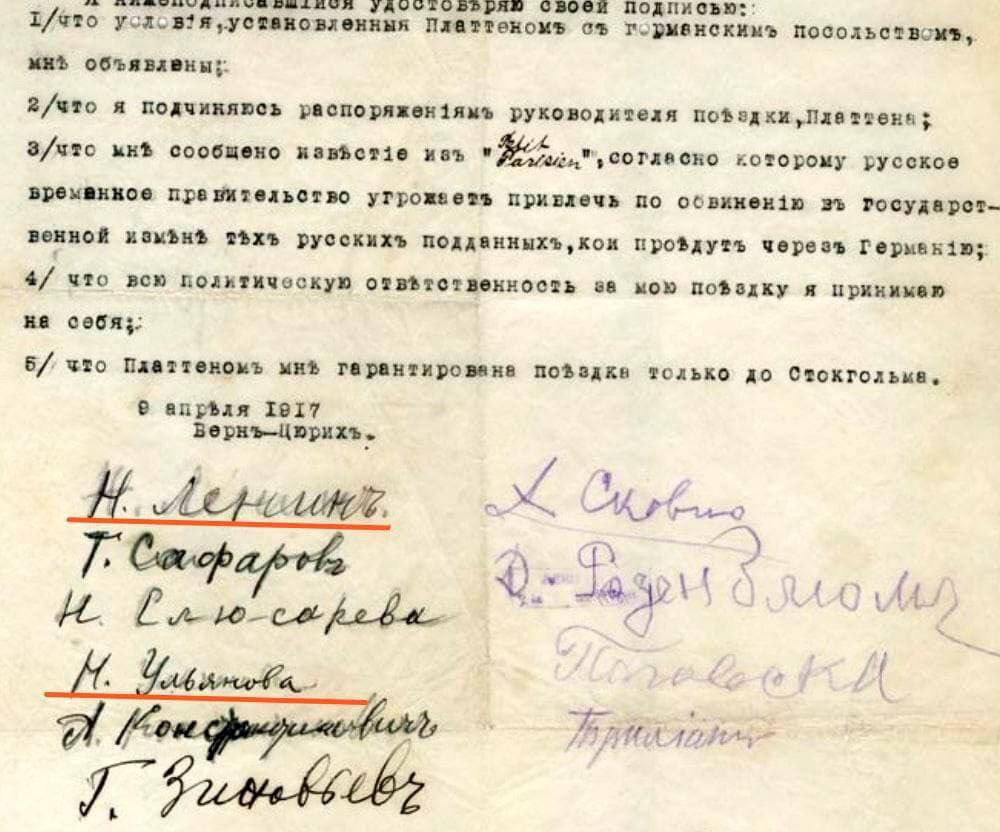 Я нижеподписавшiйся удостовѣряю своей подписью:
1/что условiя,установленныя Платтеномъ съ германскимъ посольствомъ,
мнѣ объявлены;
2/что я подчиняюсь распоряженiямъ руководителя поѣздки,Платтена;
3/что мнѣ сообщено извѣстiе изъ "Petit Parisien",согласно которому русское
временное правительство угрожаетъ привлечь по обвиненiю въ государст-
венной измѣнѣ тѣхъ русскихъ подданныхъ,кои проѣдутъ черезъ Германiю;
4/ что всю политическую отвѣтственность за мою поѣздку я принимаю
на себя;
5/ что Платтеномъ мнѣ гарантирована поѣздка только до Стокгольма.
9 апрѣля 1917
Бернъ-Цюрихъ.
Н. Ленинъ.
Г. Сафаровъ
Н. Слю-сарева
Н. Ульянова
А. Константиновичъ
Г. Зиновьевъ
А Сковно
Д. Розенблюмъ